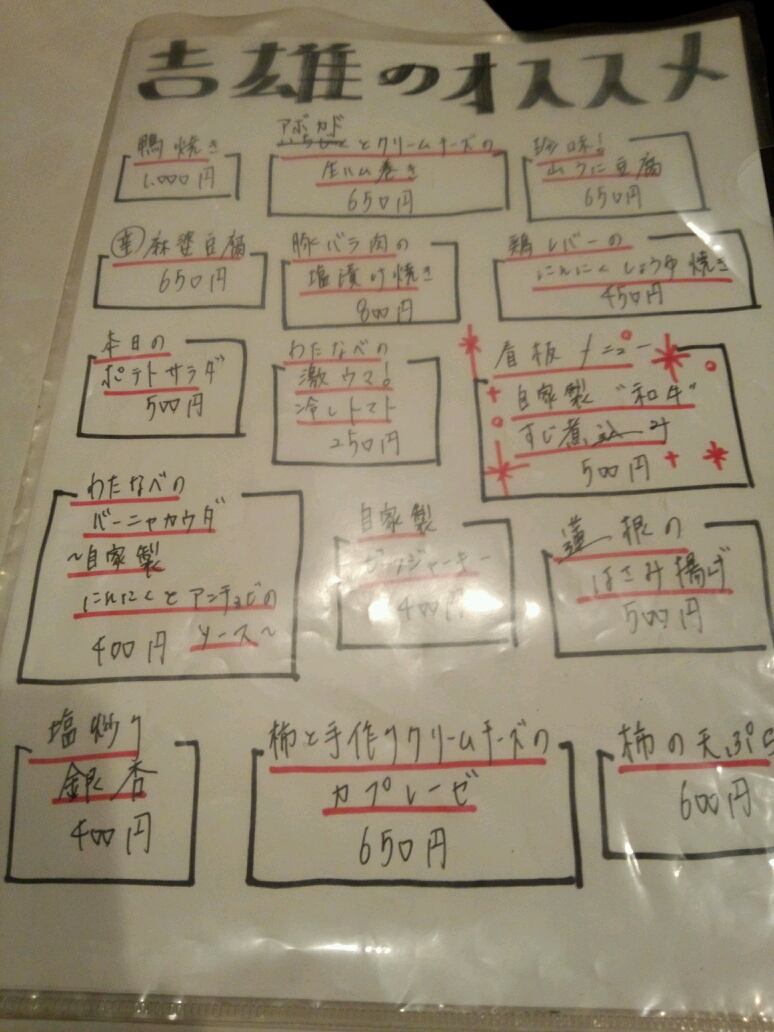 吉雄のオススメ
鴨焼き
1.000円
アボカド
とクリームチーズの
生ハム巻き
650円
珍味!
山うに豆腐
650円
麻婆豆腐
650円
豚バラ肉の
塩漬け焼き
800円
鶏レバーの
にんにくしょうゆ焼き
450円
本日の
ポテトサラダ
500円
わたなべの
激ウマ!
冷しトマト
250円
看板メニュー
自家製"和牛"
すじ煮込み
500円
わたなべの
バーニャカウダ
~自家製
にんにくとアンチョビの
ソース~
400円
自家製
ビーフジャーキー
400円
蓮根の
はさみ揚げ
500円
塩炒り
銀杏
400円
柿と手作りクリームチーズの
カプレーゼ
650円
柿の天ぷら
600円